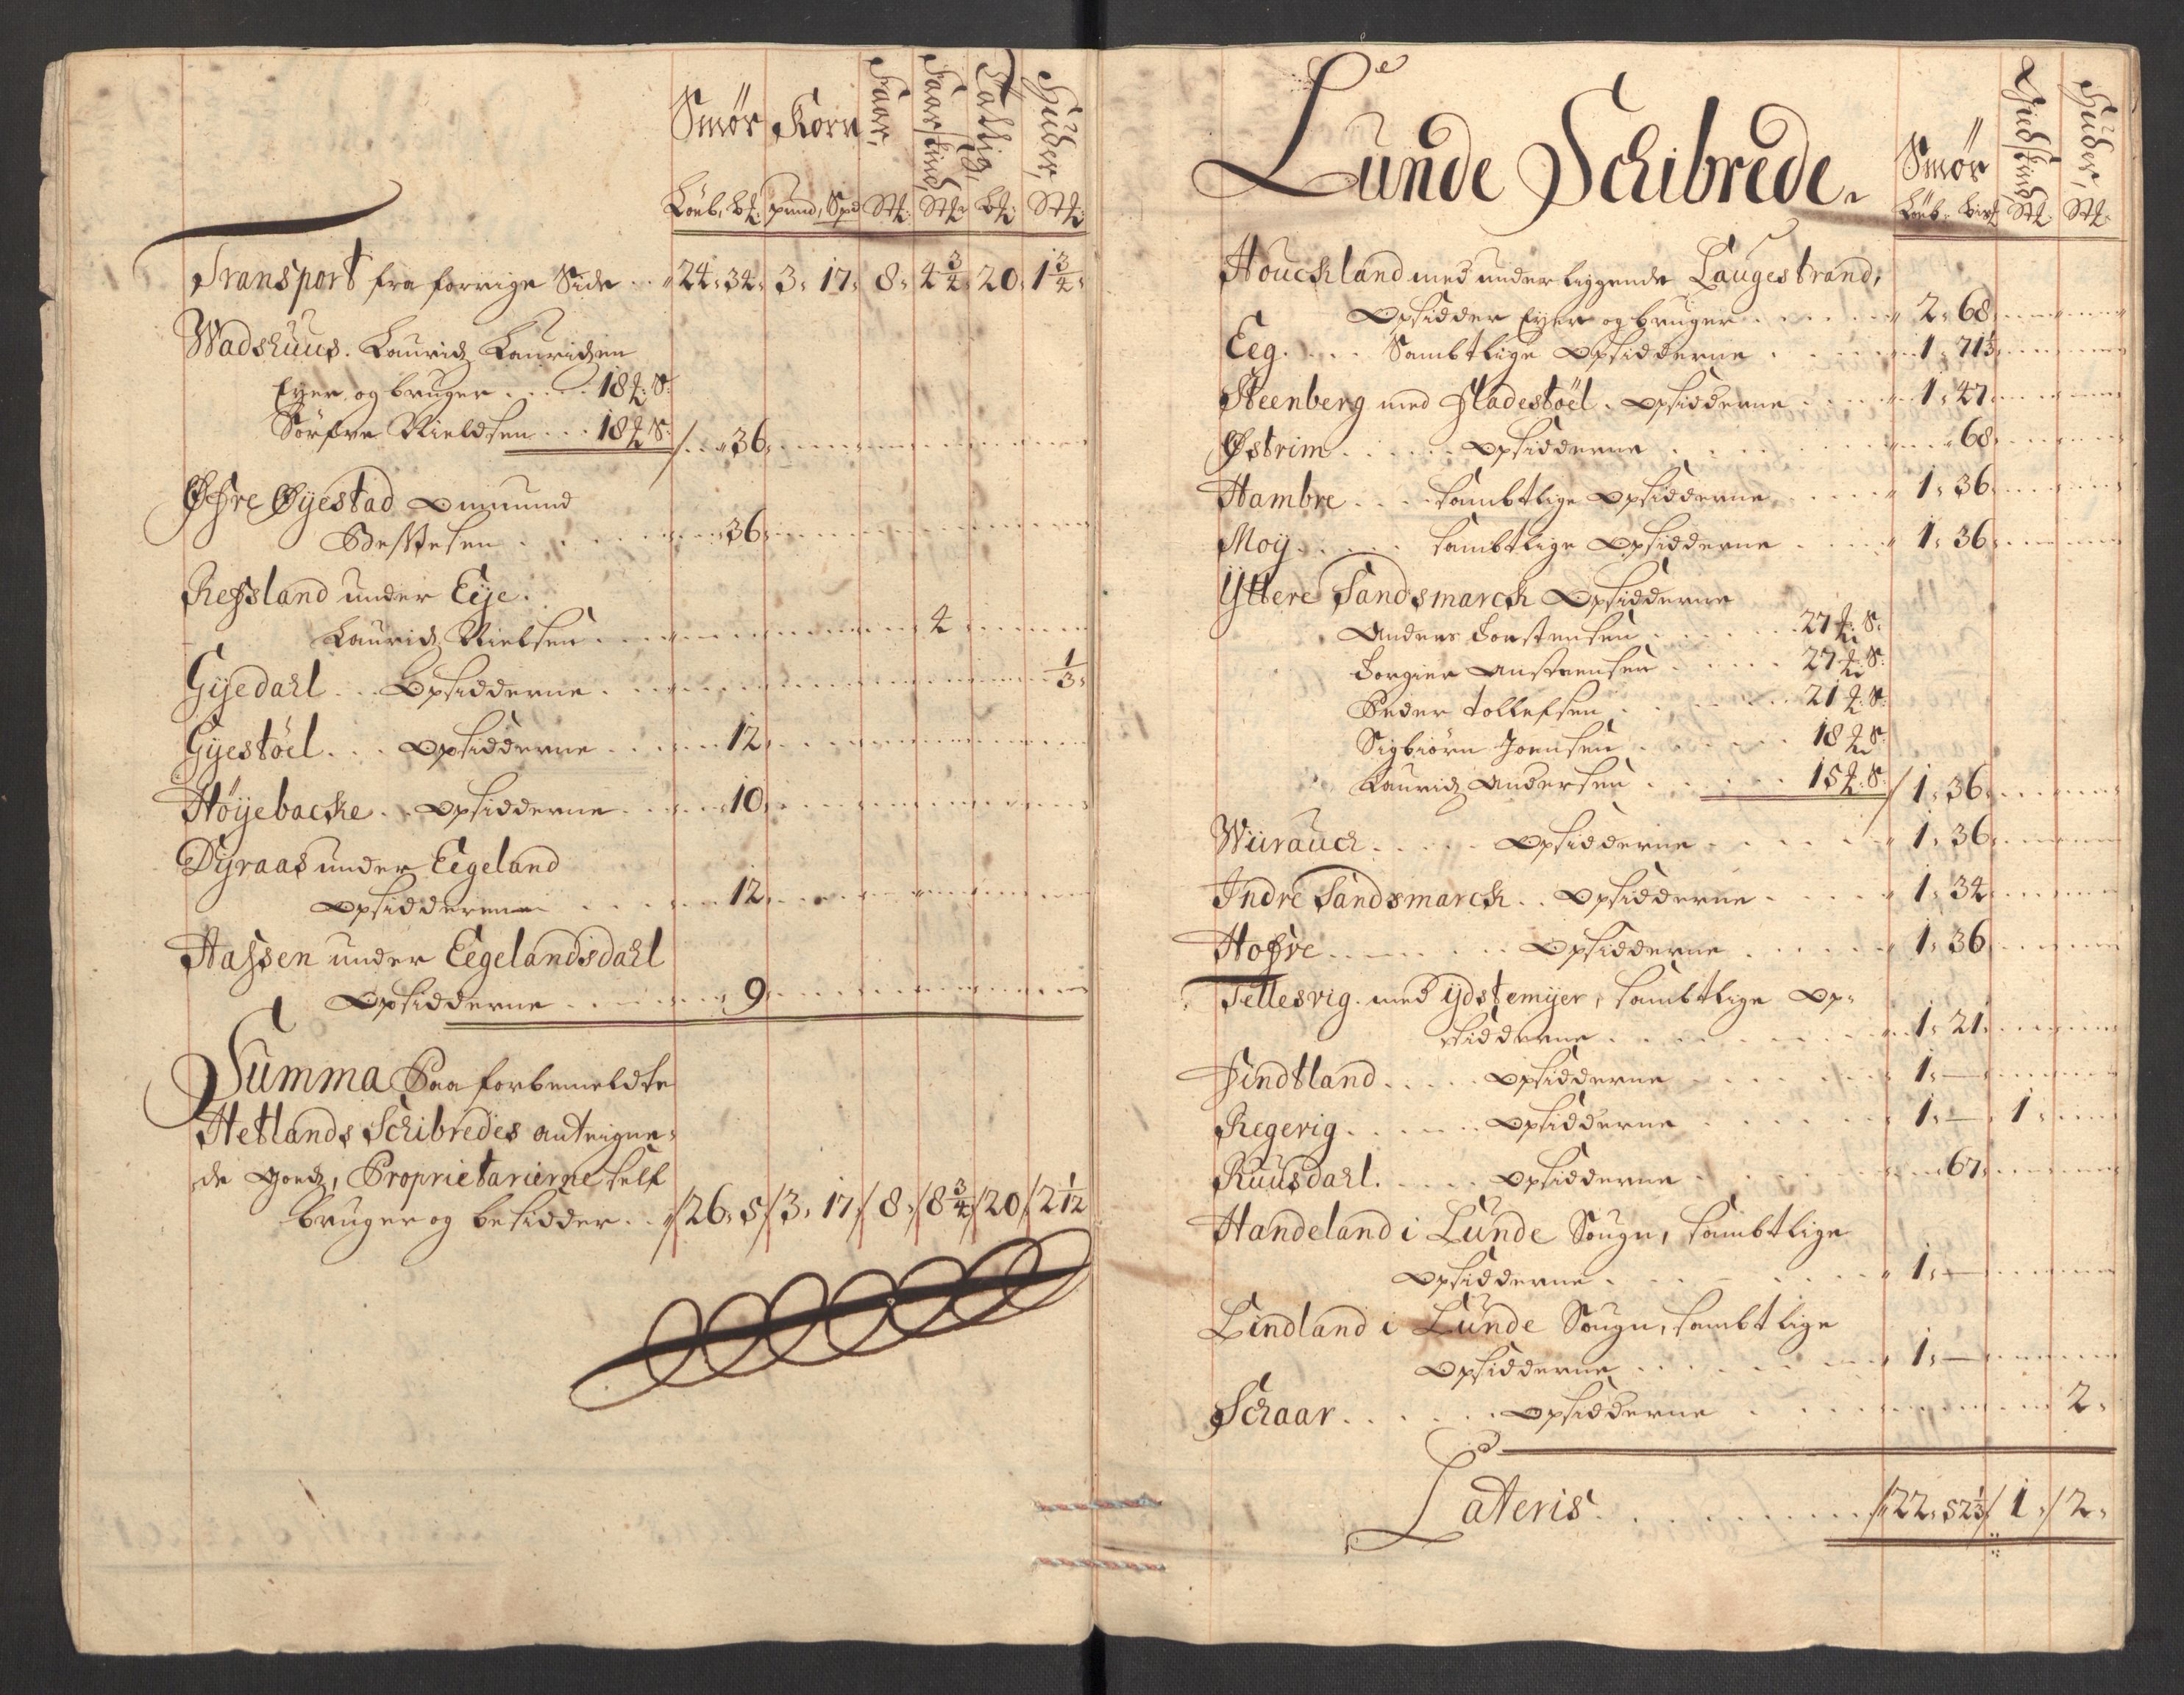 Smør Korn Faar, Faarskind, Tallig, Huder,
Løeb, b℔: pund, Spd St℔: St℔: b℔: St℔:
Transport fra forrige Side .. 24, 34, 3, 17, 8, 4 3/4 20, 1 3/4,
Wadshuus. Lauridz Lauridzen
Eyer og bruger .... 18 ℔: S:
Sørfve Nieldsen ... 18 ℔ S: /. 36,
Øfre Øyestad Ommund
..... 36,
Refsland under Eije.
Lauridz Nielsen .... 4
Gyedahl ... Opsidderne .... 1/3,
Gyestøel ... Opsidderne .... 12,
Høyebacke .. Opsidderne .... 10,
Dyraas under Eegeland
Opsidderne .... 12,
Hafsen under Eegelandsdahl
Opsidderne .... 9,
Summa Paa forbemeldte
Hetlands Schibredes anteigne,
de Goedz, Proprietarierne self
bruger og besidder .. /26, 5/3, 17/8,/8 3/4/20/2 1/12
Lunde Schibrede.
Smør Huder,
Løeb, St℔: St℔:
Houckland med underliggende Laugestrand,
Opsidder Eyer og bruger .... 2, 68,
Eeg. ... Sambtlige Opsidderne .... 1, 71 1/3,
Steenberg med Fladestøel. Opsidderne .... 1, 47,
Østrim ..... Opsidderne .... 68,
Hambre ... Sambtlige Opsidderne .... 1, 36,
Moy ..... Sambtlige Opsidderne .... 1, 36,
Yttere Sandsmarck Opsidderne
Anders Torstensen .... 27 ℔: S:
Torgier .... 27 ℔ S:
Peder Tollefsen .... 21 ℔: S:
Sigbiørn Joensen .... 18 ℔ S:
Lauridz Andersen .... 15 ℔: S: / 1, 36,
Wiirauch ..... Opsidderne .... 1, 36,
Indre Sandsmarck .. Opsidderne .... 1, 34,
Hofre ..... Opsidderne .... 1, 36,
Tellesvig. med ydstemyer, Sambtlige Op,
sidderne .... 1, 21,
Findtland ..... Opsidderne .... 1, —
Regevig ..... Opsidderne .... 1, — 1,
Ruusdahl ..... Opsidderne .... 67,
Handeland i Lunde Sougn, Sambtlige
Opsidderne .... 1, —
Lindland i Lunde Sougn, Sambtlige
Opsidderne .... 1, —
Schaar ..... Opsidderne .... 2,
Lateris ..... /22, 52 1/3/ 1,/ 2,